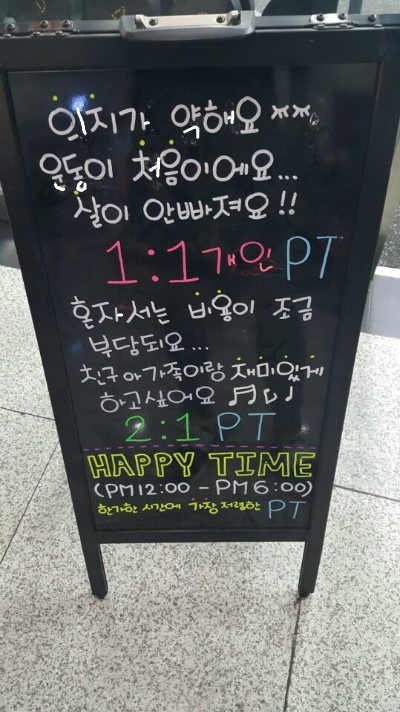 의지가 약해요 ㅠㅠ
운동이 처음이에요...
살이 안빠져요!!
1:1 개인 PT
혼자서는 비용이 조금
부담되요...
친구야 가족이랑 재미있게
하고싶어요 ♬♩♪
2:1 PT
HAPPY TIME
(PM12:00 - PM6:00)
한가한 시간에 가장 저렴한 PT